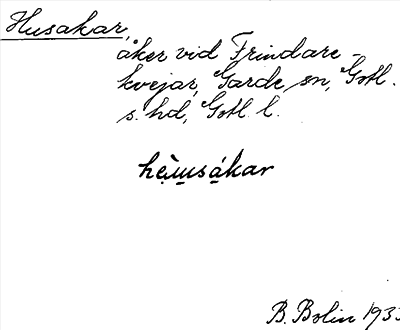 Husakar,
åker vid Frindare-
kvejar, Garde sn, Gotl.
s. hd, Gotl. l.
hẹ̀ɯ̲sá̲kar
B. Bolin 193